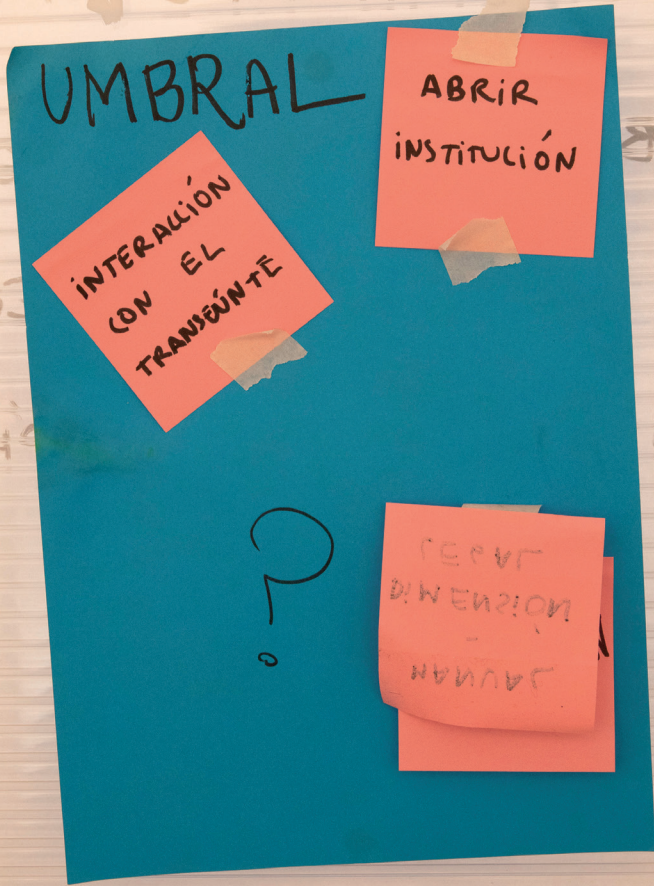 UMBRAL
ABRIR
INSTITUCIÓN
INTERACCIÓN
CON EL
TRANSEÚNTE
?
MANUAL
-
DIMENSIÓN
LEGAL